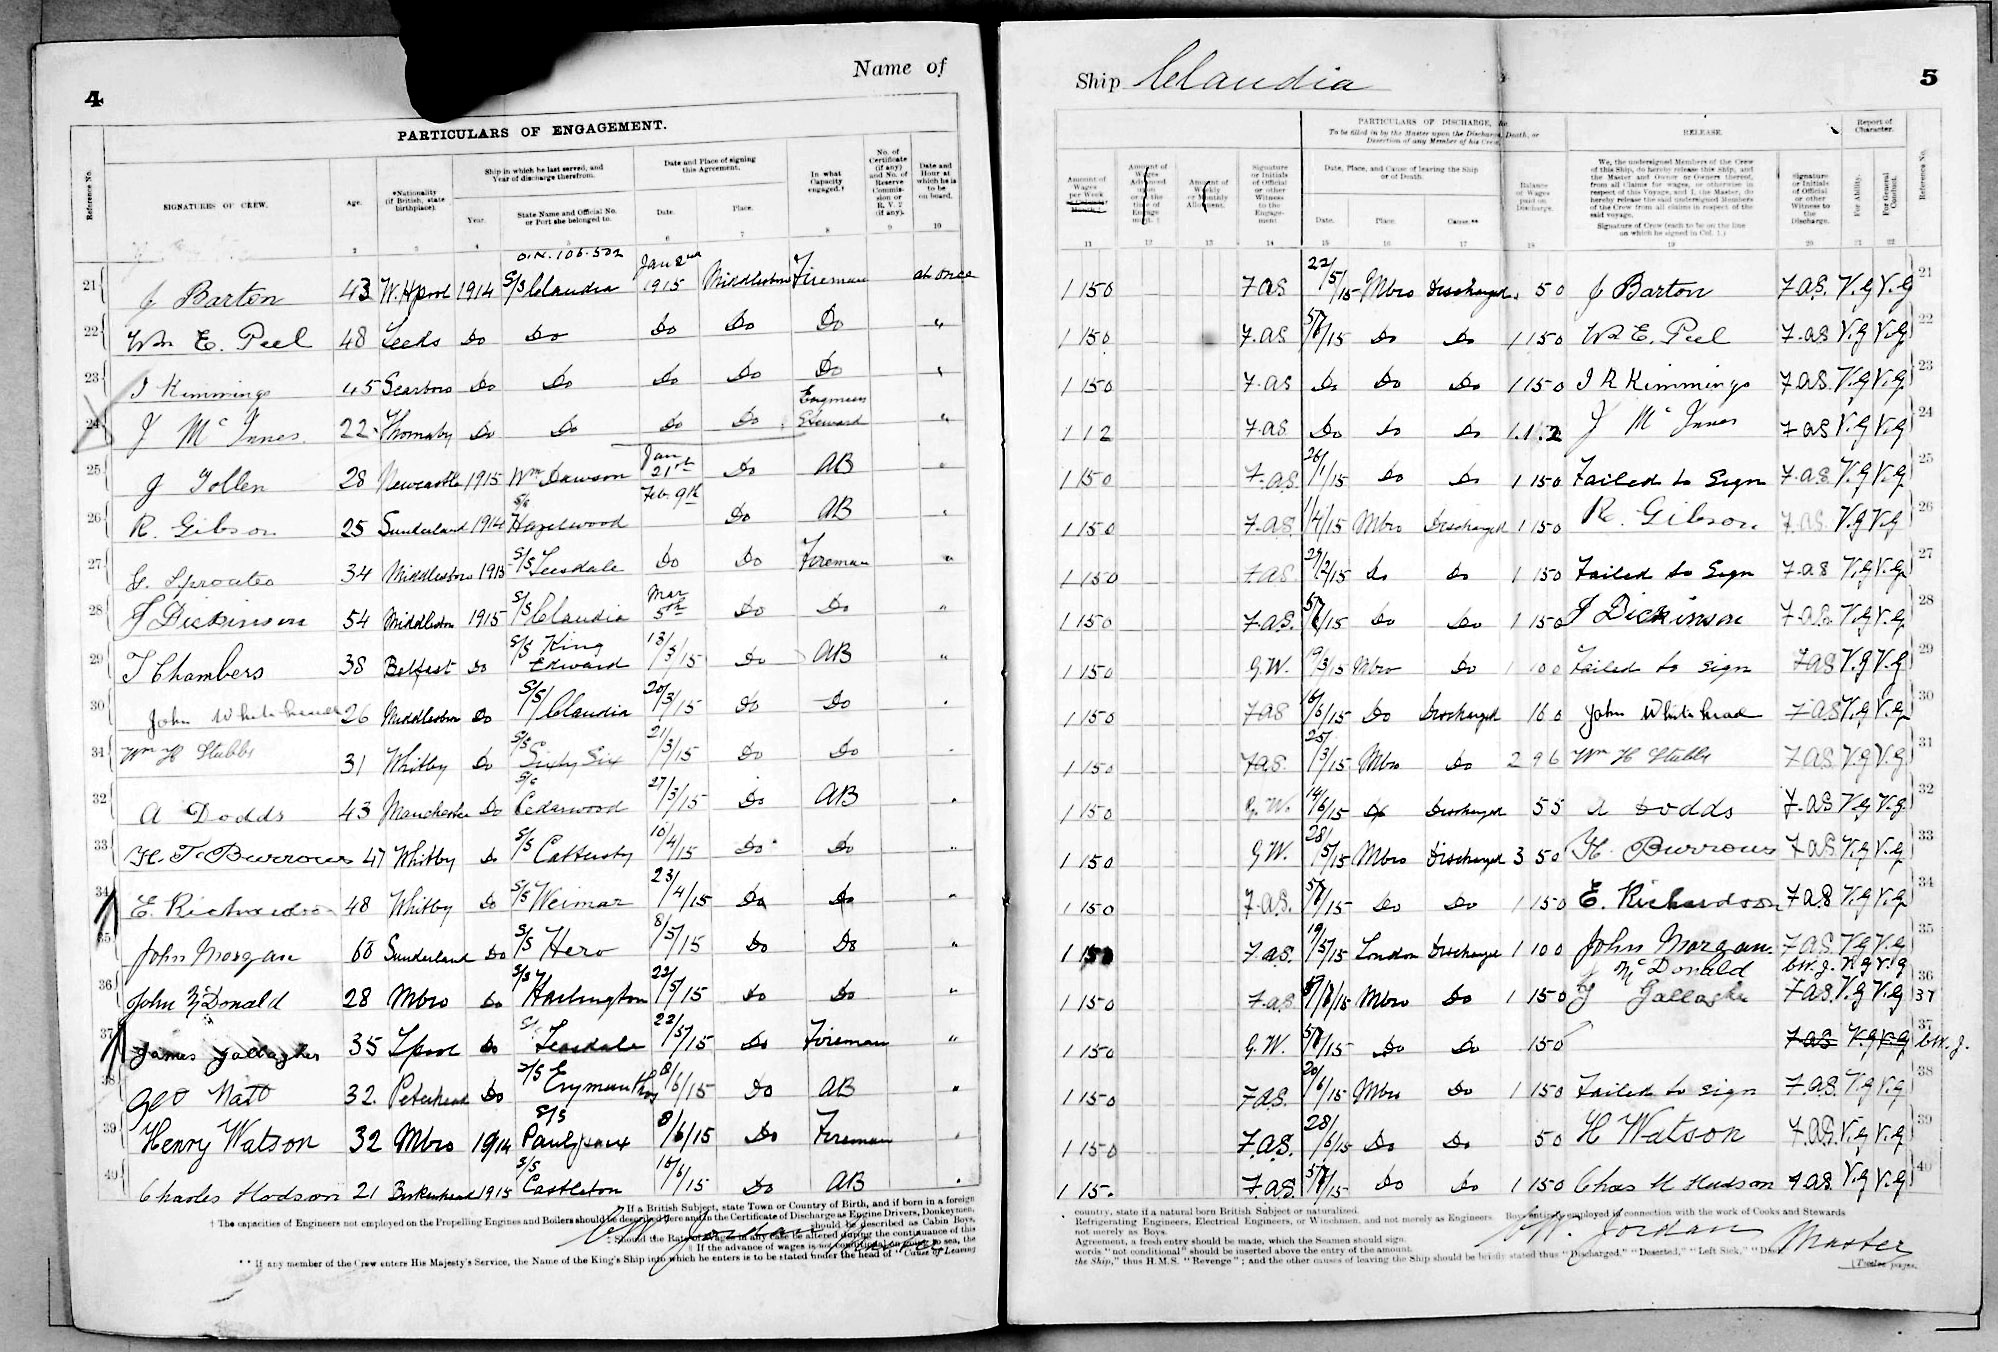 4
Name of
PARTICULARS OF ENGAGEMENT.
Reference No.
SIGNATURES OF CREW.
Age.
*Nationality (if British, state birthplace).
Ship in which he last served, and Year of discharge therefrom.
Year.
State Name and Official No. or Port she belonged to.
Date and Place of signing this Agreement.
Date.
Place.
In what Capacity engaged.†
No. of Certificate (if any) and No. of Reserve Commission or R. V. 2 (if any).
Date and Hour at which he is to be on board.
2 3 4 5 6 7 8 9 10
O.N. 106.502
21 J Barton 43 W.Hpool 1914 S/S Claudia Jan 2nd 1915 Middlesbro Fireman at once
22 Wm E. Peel 48 Leeds Do Do Do Do Do "
23 J Kimmings 45 Scarboro Do Do Do Do Do "
24 J McInnes 22 Thornaby Do Do Do Do Engineers Steward "
25 J Tollen 28 Newcastle 1915 Wm Dawson Jan 21st Do AB "
26 R. Gibson 25 Sunderland 1914 S/S Hazelwood Feb. 9th Do AB "
27 Sproates 34 Middlesbro 1915 S/S Teesdale Do Do Fireman "
28 J Dickinson 54 Middlesbro 1915 S/S Claudia Mar 5th Do Do "
29 T Chambers 38 Belfast Do S/S King Edward 13/3/15 Do AB "
30 John Whitehead 26 Middlesbro Do S/S Claudia 20/3/15 Do Do "
31 Wm H Stubbs 31 Whitby Do S/S Sixty Six 21/3/15 Do Do "
32 A Dodds 43 Manchester Do S/S Cedarwood 27/3/15 Do AB "
33 H. T. Burrows 47 Whitby Do S/S Cattersty 10/4/15 Do Do "
34 E. Richardson 48 Whitby Do S/S Weimar 23/4/15 Do Do "
35 John Morgan 60 Sunderland Do S/S Hero 8/5/15 Do Do "
36 John McDonald 28 Mbro Do S/S Harlington 22/5/15 Do Do "
37 James Gallagher 35 Lpool Do S/S Teesdale 22/5/15 Do Fireman "
38 Geo Natt 32 Peterhead Do S/S Erymanthos 8/6/15 Do AB "
39 Henry Watson 32 Mbro 1914 S/S 8/6/15 Do Fireman "
40 Charles Hodson 21 Birkenhead 1915 S/S Castleton 15/6/15 Do AB "
* If a British Subject, state Town or Country of Birth, and if born in a foreign
† The capacities of Engineers not employed on the Propelling Engines and Boilers should be described here and in the Certificate of Discharge as Engine Drivers, Donkeymen,
should be described as Cabin Boys,
‡ Should the Rate of Wages in any case be altered during the continuance of this
|| If the advance of wages is not conditional on going to sea, the
** If any member of the Crew enters His Majesty's Service, the Name of the King's Ship into which he enters is to be stated under the head of "Cause of Leaving
C.W. Jordan Master
Ship Claudia
5
PARTICULARS OF DISCHARGE, &c.
To be filled in by the Master upon the Discharge, Death, or Desertion of any Member of his Crew.
RELEASE.
Report of Character.
Amount of Wages per Week
Amount of Wages Advanced upon
Amount of Weekly or Monthly Allotment.
Signature or Initials of Official or other Witness to the Engagement
Date, Place, and Cause of leaving the Ship or of Death.
Date.
Place.
Cause.**
Balance of Wages paid on Discharge.
We, the undersigned Members of the Crew of this Ship, do hereby release this Ship, and the Master and Owner or Owners thereof, from all Claims for wages, or otherwise in respect of this Voyage, and I, the Master, do hereby release the said undersigned Members of the Crew from all claims in respect of the said voyage.
Signature of Crew (each to be on the line on which he signed in Col. 1.)
Signature or Initials of Official or other Witness to the Discharge.
For Ability.
For General Conduct.
Reference No.
11 12 13 14 15 16 17 18 19 20 21 22
1 15 0 F.A.S 22/5/15 Mbro Discharged 5 0 J Barton F.A.S. V.g V.g 21
1 15 0 F.A.S 5/7/15 Do Do 1 15 0 Wm E. Peel F.A.S V.g V.g 22
1 15 0 F.A.S Do Do Do 1 15 0 J R Kimmings F.A.S. V.g V.g 23
1 12 F.A.S Do Do Do 1.1.2 J McInnes F.A.S V.g V.g 24
1 15 0 F.A.S. 26/1/15 Do Do 1 15 0 Failed to Sign F.A.S V.g V.g 25
1 15 0 F.A.S. 1/4/15 Mbro Discharged 1 15 0 R. Gibson F.A.S V.g V.g 26
1 15 0 F.A.S /2/15 Do Do 1 15 0 Failed to Sign F.A.S V.g V.g 27
1 15 0 F.A.S. 5/7/15 Do Do 1 15 0 J Dickinson F.A.S. V.g V.g 28
1 15 0 G.W. 19/3/15 Mbro Do 1 0 0 Failed to sign F.A.S V.g V.g 29
1 15 0 F.A.S /5/15 Do Discharged 16 0 John Whitehead F.A.S V.g V.g 30
1 15 0 F.A.S. 25/3/15 Mbro Do 2 9 6 Wm H Stubbs F.A.S V.g V.g 31
1 15 0 G.W. 14/6/15 Do Discharged 5 5 A Dodds F.A.S V.g V.g. 32
1 15 0 G.W. 28/5/15 Mbro Discharged 3 5 0 H. Burrows F.A.S. V.g V.g. 33
1 15 0 F.A.S. 5/7/15 Do Do 1 15 0 E. Richardson F.A.S V.g V.g 34
1 15 0 F.A.S. 19/5/15 London Discharge 1 10 0 John Morgan. F.A.S. V.g V.g. 35
J McDonald C.W.J. V.g V.g 36
1 15 0 F.A.S. 5/7/15 Mbro Do 1 15 0 J Gallagher F.A.S. V.g V.g 37
1 15 0 G.W. 5/7/15 Do Do 15 0 F.A.S V.g V.g 37 C.W.J.
1 15 0 F.A.S. 20/6/15 Mbro Do 1 15 0 Failed to sign F.A.S. V.g V.g 38
1 15 0 F.A.S. 28/6/15 Do Do 5 0 H Watson F.A.S. V.g V.g. 39
1 15. F.A.S. 5/7/15 Do Do 1 15 0 Chas H Hudson F.A.S. V.g V.g. 40
country, state if a natural born British Subject or naturalised.
Refrigerating Engineers, Electrical Engineers, or Winchmen, and not merely as Engineers. Boys entirely employed in connection with the work of Cooks and Stewards
not merely as Boys.
Agreement, a fresh entry should be made, which the Seamen should sign.
words "not conditional" should be inserted above the entry of the amount.
the Ship," thus H.M.S. "Revenge"; and the other causes of leaving the Ship should be briefly stated thus "Discharged," "Deserted," "Left Sick,"
C.W. Jordan Master